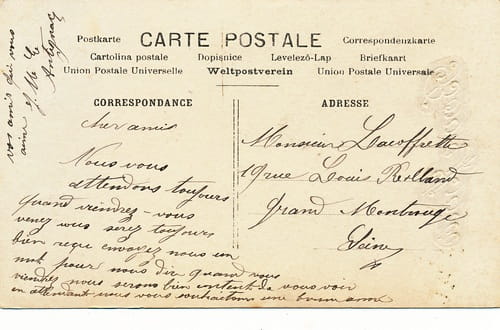 Postkarte CARTE POSTALE Correspondenzkarte
Cartolina postale Dopisnice Levelező-Lap Briefkaart
Union Postale Universelle Weltpostverein Union Postale Universale
CORRESPONDANCE
cher amis
Nous vous
attendons toujours
quand viendrez-vous
venez vous serez toujours
bien reçu envoyez nous un
mot pour nous dire quand vous
viendrez nous serons bien content de vous voir
en attendant nous vous souhaitons une bonne anne
vos amis qui vous
aime
ADRESSE
Monsieur Lacoffrette
19 rue Louis Rolland
grand Montrouge
Seine